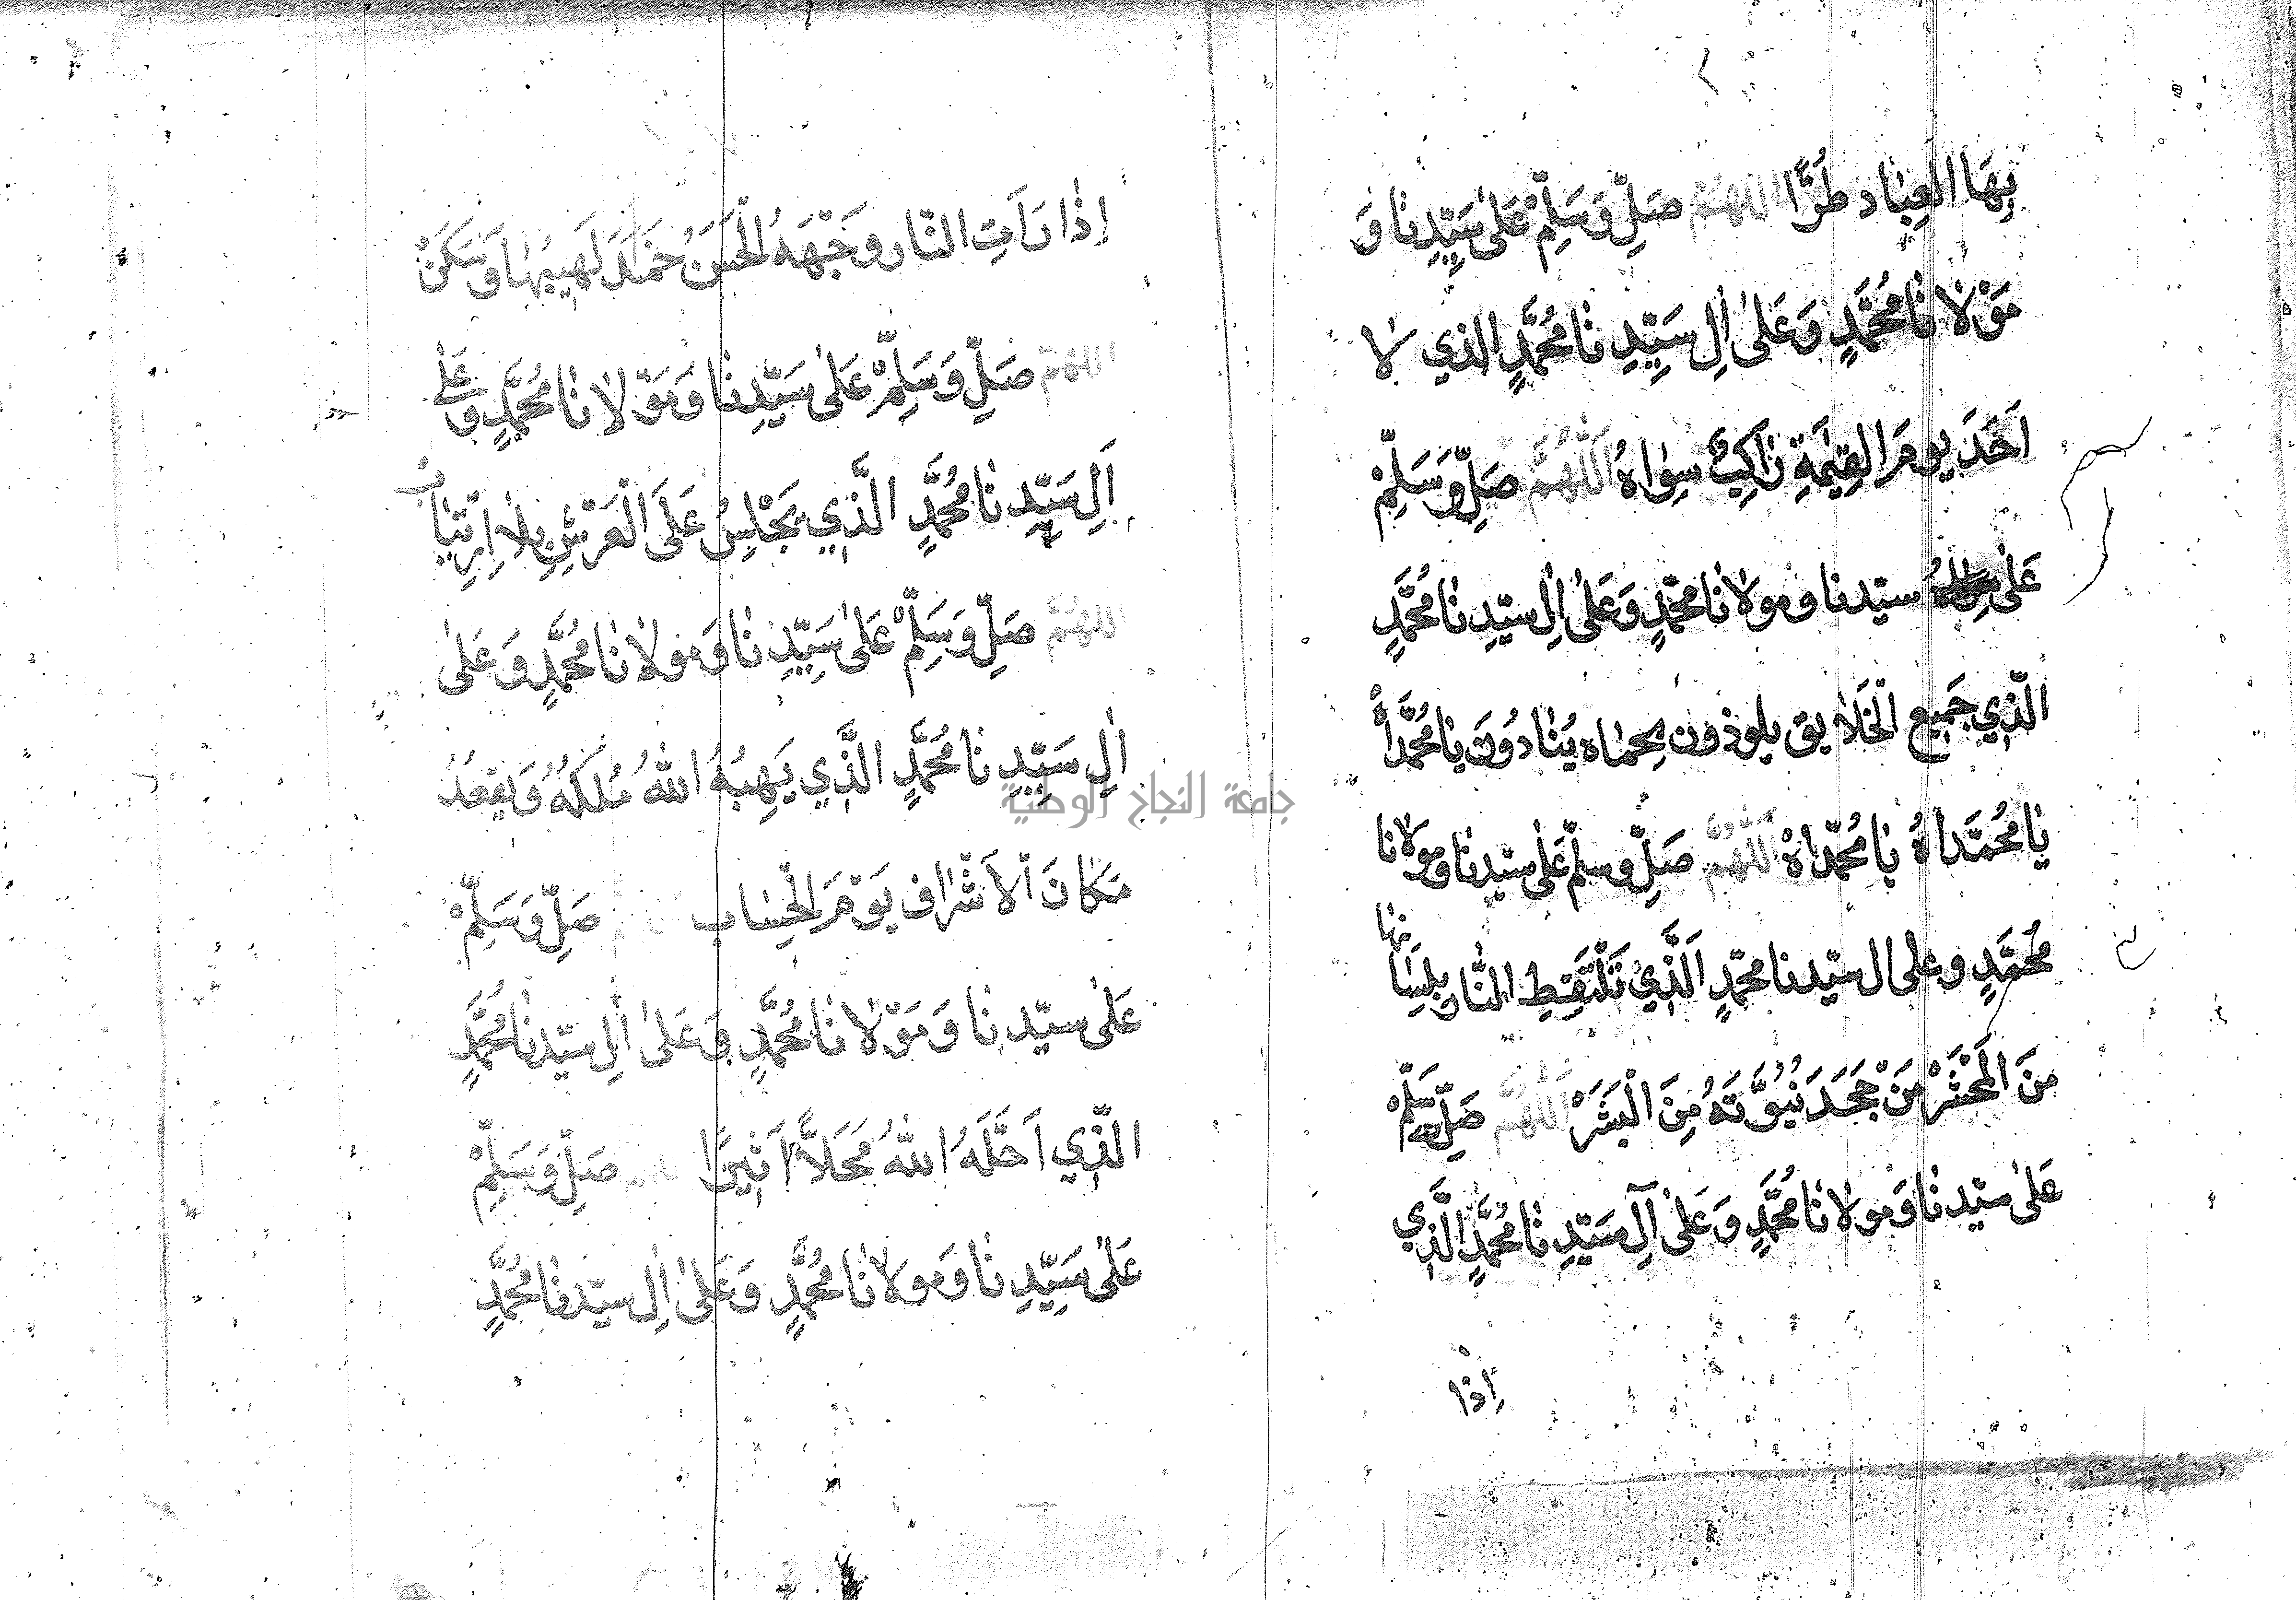 بِهَا العِبَاد طُرًّا اللهم صَلِّ وَسَلِّمْ عَلىٰ سَيِّدِنَا وَ
مَوْلَانَا مُحَمَّدٍ وَعَلىٰ اٰلِ سَيِّدِنَا مُحَمَّدٍ الذي لا
اَحَدَ يومَ القِيٰمَةِ رَاكِبٌ سِوَاهُ اَللّٰهُمَّ صَلِّ وَسَلِّمْ
عَلىٰ سيّدنا ومولانا محمّدٍ وَعَلىٰ اٰلِ سيّدِنَا مُحَمَّدٍ
الّذِي جَمِيع الْخَلَايق يلوذون بِحماه يُنَادُونَ يَا مُحَمَّدَاهْ
يَا مُحَمَّدَاهْ يَا مُحَمَّدَاهْ اَللّٰهُمَّ صَلِّ وسلّمْ عَلىٰ سيّدنَا ومولانا
مُحَمَّدٍ وعلى ال سيّدنا محمّدٍ اَلَّذِي تَلْتَقِطِ النَّار بِلِسَانِهَا
مِنَ الْمَحْشَرْ مَنْ جَحَدَ نُبُوَّتَهُ مِنَ الْبَشَرْ اَللّٰهُمَّ صَلِّ وَسَلِّمْ
عَلىٰ سيّدنَا وَمولَانَا مُحَمَّدٍ وَعَلىٰ آلِ سَيّدِنَا مُحَمَّدٍ الَّذِي
اِذَا
اِذَا رَاَتِ النّار وَجْهَهُ الْحَسَنْ خَمَدَ لَهِيبُهَا وَسَكَنْ
اللهم صَلِّ وَسَلِّمْ عَلىٰ سَيِّدِنَا وَمَوْلَانَا مُحَمَّدٍ وَعَلىٰ
اٰلِ سَيِّدِنَا مُحَمَّدٍ الَّذِي يَجْلِسُ عَلَى الْعَرْشِ بِلَا اِرْتِيَاب
اللهُمَّ صَلِّ وَسَلِّمْ عَلىٰ سَيِّدِنَا وَمولَانَا مُحَمَّدٍ وَعَلىٰ
اٰلِ سَيِّدِنَا مُحَمَّدٍ الَّذِي يَهِبُهُ اللّٰهُ مُلكَهُ وَيَقعُدُ
مَكَانَ الْاَشْرَاف يَوْمَ الْحِسَاب صَلِّ وَسَلِّمْ
عَلىٰ سيّدِنَا وَمَوْلَانَا مُحَمَّدٍ وَعَلىٰ اٰلِ سيّدنَا مُحَمَّدٍ
الّذِي اَحَلَّهُ اللّٰهُ مَحَلاًّ اَثِيرًا صَلِّ وَسَلِّمْ
عَلىٰ سَيِّدِنَا وَمولانَا مُحَمَّدٍ وَعَلىٰ اٰلِ سيّدنَا مُحَمَّدٍ
جامعة النجاح الوطنية